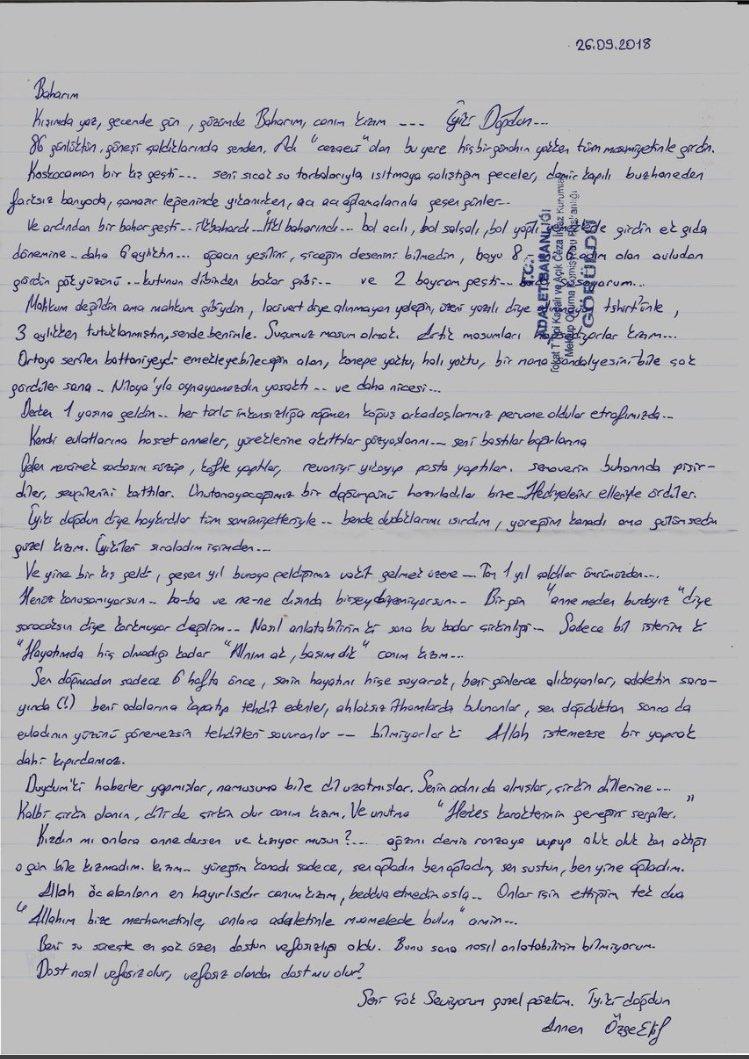 26.09.2018
Baharım
Kışımda yaz, gecemde gün, gözümde Baharım, canım kızım ---- İyiki Doğdun...
86 günlüktün, güneşi çaldıklarında senden. Adı "cezaevi" olan bu yere hiçbir günahın yokken tüm masumiyetinle girdin.
Koskocaman bir kış geçti... seni sıcak su torbalarıyla ısıtmaya çalıştığım geceler, demir kapılı buzhaneden
farksız banyoda, çamaşır leğeninde yıkanırken, acı acı ağlamalarınla geçen günler...
Ve ardından bir bahar geçti... ilkbahardı... İlk baharındı... bol acılı, bol salçalı, bol yağlı girdin ek gıda
dönemine... daha 6 aylıktın... ağacın yeşilini, çiçeğin desenini bilmedin, boyu 8 adım olan avludan
gördün gökyüzünü... kutunun dibinden bakar gibi... ve 2 bayram geçti...
Mahkum değildin ama mahkum gibiydin, lacivert diye alınmayan yeleğin, üzeri yazılı diye tshirt'ünle,
3 aylıkken tutuklanmıştın, sende benimle. Suçumuz masum olmak. Artık masumları kızım...
Ortaya serilen battaniyeydi emekleyebileceğin alan, kanepe yoktu, halı yoktu, bir mama sandalyesini bile çok
gördüler sana... Niloya'yla oynayamazdın yasaktı... ve daha nicesi...
Derken 1 yaşına geldin... her türlü imkansızlığa rağmen koğuş arkadaşlarımız pervane oldular etrafımızda...
Kendi evlatlarına hasret anneler, yüreklerine akıttılar gözyaşlarını... seni bastılar bağırlarına
Gelen mercimek çorbasını süzüp, köfte yaptılar, revaniyi yıkayıp pasta yaptılar. semaverin buharında pişir-
diler, sevgilerini kattılar. Unutamayacağımız bir doğumgünü hazırladılar bize... Hediyelerini elleriyle ördüler.
İyiki doğdun diye haykırdılar tüm samimiyetleriyle... bende dudaklarımı ısırdım, yüreğim kanadı ama gülümsedim
güzel kızım. İyikileri sıraladım içimden...
Ve yine bir kış geldi, geçen yıl buraya geldiğimiz vakit gelmek üzere... Tam 1 yıl çaldılar ömrümüzden...
Henüz konuşamıyorsun... ba-ba ve ne-ne dışında birşey diyemiyorsun... Bir gün "anne neden burdayız" diye
soracaksın diye korkmuyor değilim... Nasıl anlatabilirim ki sana bu kadar çirkinliği... Sadece bil isterim ki
"Hayatımda hiç olmadığı kadar "Alnım ak, başım dik" canım kızım...
Sen doğmadan sadece 6 hafta önce, senin hayatını hiçe sayarak, beni günlerce alıkoyanlar, adaletin sara-
yında (!) beni odalarına kapatıp tehdit edenler, ahlaksız ithamlarda bulunanlar, sen doğduktan sonra da
evladının yüzünü göremezsin tehditleri savuranlar --- bilmiyorlar ki Allah istemezse bir yaprak
dahi kıpırdamaz.
Duydum ki haberler yapmışlar, namusuma bile dil uzatmışlar. Senin adını da almışlar, çirkin dillerine...
Kalbi çirkin olanın, dili de çirkin olur canım kızım. Ve unutma "Herkes karakterinin gereğini sergiler."
Kızdın mı onlara anne dersen ve kızıyor musun?... ağzını demir ranzaya vurup oluk oluk kan aktığı
o gün bile kızmadım. kızım... yüreğim kanadı sadece, sen ağladın ben ağladım, sen sustun, ben yine ağladım.
Allah öc alanların en hayırlısıdır canım kızım, beddua etmedim asla... Onlar için ettiğim tek dua
"Allahım bize merhametinle, onlara adaletinle muamelede bulun" amin...
Beni şu süreçte en çok üzen dostun vefasızlığı oldu. Bunu sana nasıl anlatabilirim bilmiyorum.
Dost nasıl vefasız olur, vefasız olandan dost mu olur?
Seni Çok Seviyorum güzel gözlüm. İyiki doğdun
Annen Özge Elif
T.C.
ADALET BAKANLIĞI
Tokat T Tipi Kapalı ve Açık Ceza İnfaz Kurumu
Mektup Okuma Komisyonu Başkanlığı
GÖRÜLDÜ